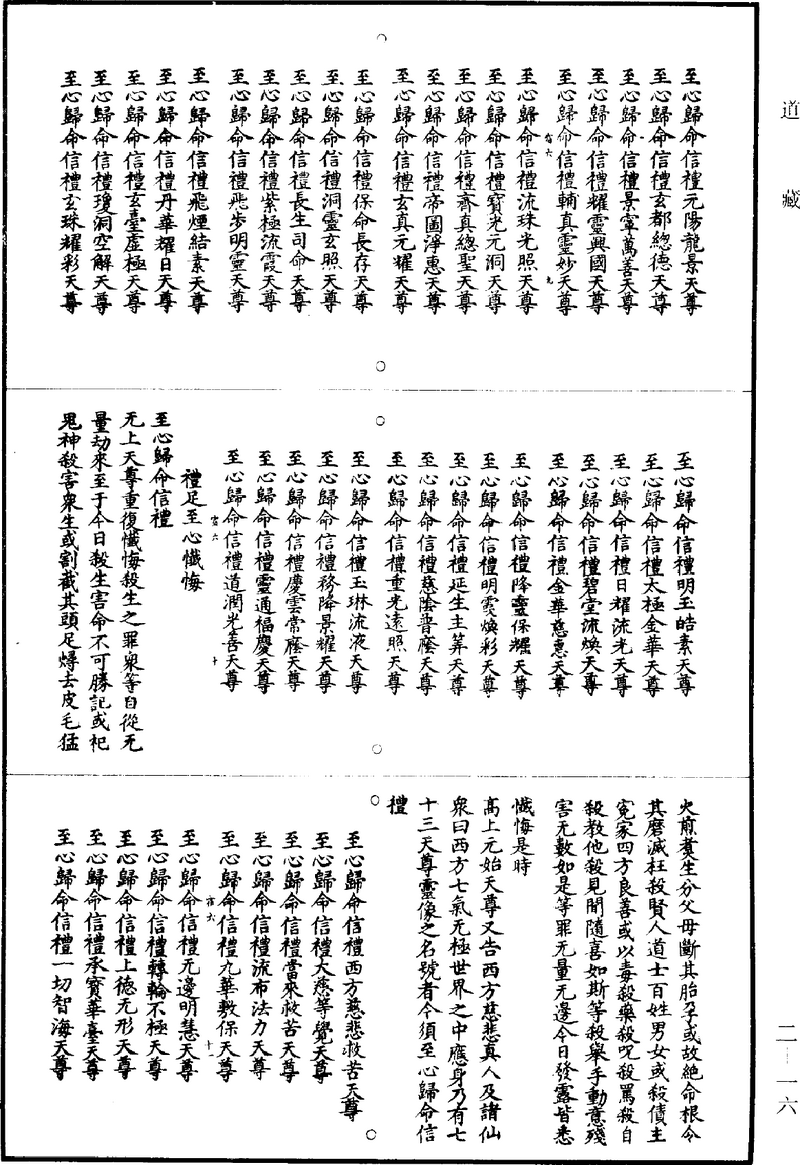 道藏
至心歸命信禮元陽龍景天尊
至心歸命信禮玄都總德天尊
至心歸命信禮景霄萬善天尊
至心歸命信禮耀靈興國天尊
至心歸命信禮輔真靈妙天尊
宿六 九
至心歸命信禮流珠光照天尊
至心歸命信禮寶光元洞天尊
至心歸命信禮齊真總聖天尊
至心歸命信禮帝圖淨惠天尊
至心歸命信禮玄真元耀天尊
至心歸命信禮保命長存天尊
至心歸命信禮洞靈玄照天尊
至心歸命信禮長生司命天尊
至心歸命信禮紫極流霞天尊
至心歸命信禮飛步明靈天尊
至心歸命信禮飛煙結素天尊
至心歸命信禮丹華耀日天尊
至心歸命信禮玄臺虛極天尊
至心歸命信禮瓊洞空解天尊
至心歸命信禮玄珠耀彩天尊
至心歸命信禮明玉皓素天尊
至心歸命信禮太極金華天尊
至心歸命信禮日耀流光天尊
至心歸命信禮碧堂流煥天尊
至心歸命信禮金華慈惠天尊
至心歸命信禮降靈保耀天尊
至心歸命信禮明霞煥彩天尊
至心歸命信禮延生主筭天尊
至心歸命信禮慈陰普廕天尊
至心歸命信禮重光遠照天尊
至心歸命信禮玉琳流液天尊
至心歸命信禮務降景耀天尊
至心歸命信禮慶雲常廕天尊
至心歸命信禮靈通福慶天尊
至心歸命信禮道潤光善天尊
宿六 十
禮足至心懺悔
至心歸命信禮
无上天尊重復懺悔殺生之罪衆等自從无
量劫來至于今日殺生害命不可勝記或祀
鬼神殺害衆生或割截其頭足燖去皮毛猛
火煎煑生分父母斷其胎孕或故絶命根令
其磨滅枉殺賢人道士百姓男女或殺債主
寃家四方良善或以毒殺藥殺呪殺罵殺自
殺教他殺見聞隨喜如斯等殺舉手動意殘
害无數如是等罪无量无邊今日發露皆悉
懺悔是時
高上元始天尊又告西方慈悲真人及諸仙
衆曰西方七氣无極世界之中應身乃有七
十三天尊靈像之名號者今須至心歸命信
禮
至心歸命信禮西方慈悲救苦天尊
至心歸命信禮大慈等覺天尊
至心歸命信禮當來救苦天尊
至心歸命信禮流布法力天尊
至心歸命信禮九華敷保天尊
宿六 十一
至心歸命信禮无邊明慧天尊
至心歸命信禮轉輪不極天尊
至心歸命信禮上德无形天尊
至心歸命信禮承寶華臺天尊
至心歸命信禮一切智海天尊
二—一六